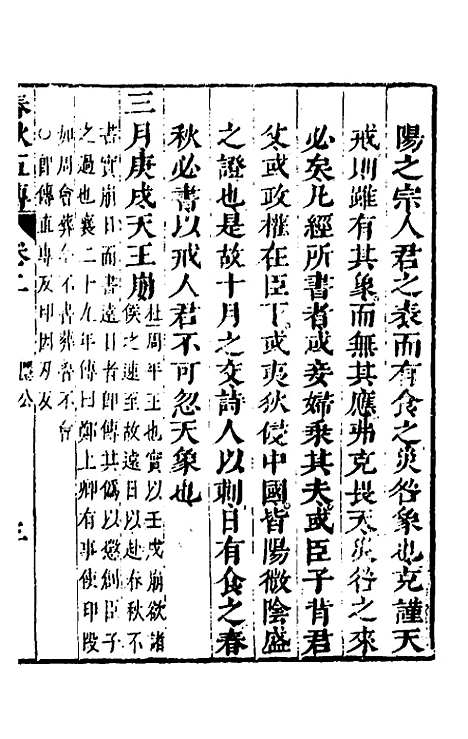 陽之宗人君之表而有食之災咎象也克謹天
戒則雖有其象而無其應弗克畏天災咎之來
必矣凡經所書者或妾婦乗其夫或臣子背君
父或政權在臣下或夷狄侵中國皆陽微陰盛
之證也是故十月之交詩人以刺日有食之春
秋必書以戒人君不可忽天象也
三月庚戌天王崩
杜周平王也實以壬戌崩欲諸
侯之速至故遠日以赴春秋不
書實崩日而書遠日者即傳其僞以懲創臣子
之過也襄二十九年傳曰鄭上卿有事使印段
如周會葬今不書葬魯不會
○即傳直專反印因刃反
春秋五傳 卷二 隱公 三